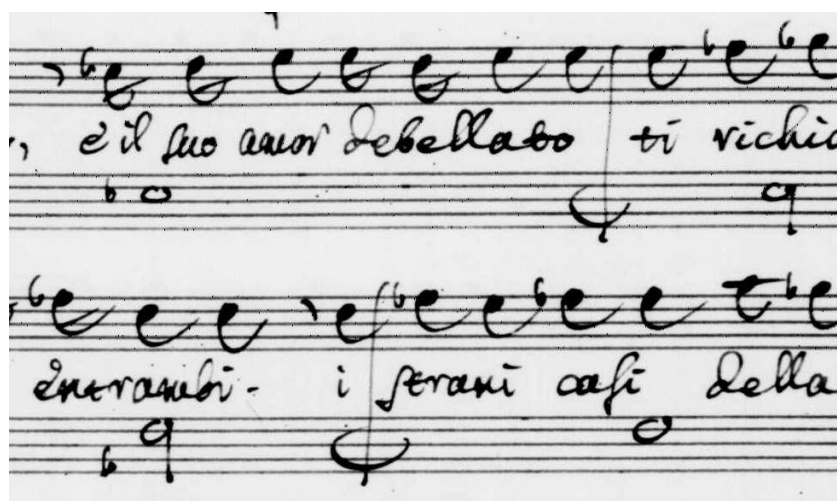 , è il suo amor debellato ti richi
entrambi - i strani casi della